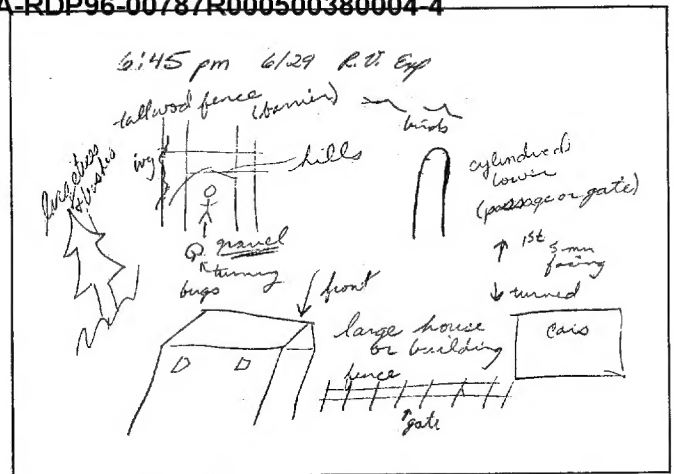 A-RDP96-00787R000500380004-4
6:45 pm 6/29 R.V. Exp
tall wood fence (barrier)
birds
large trees
& bushes
ivy
hills
cylindrical
tower
(passage or gate)
gravel
turning
bugs
1st 5 mn
facing
turned
front
large house
or building
fence
gate
cars